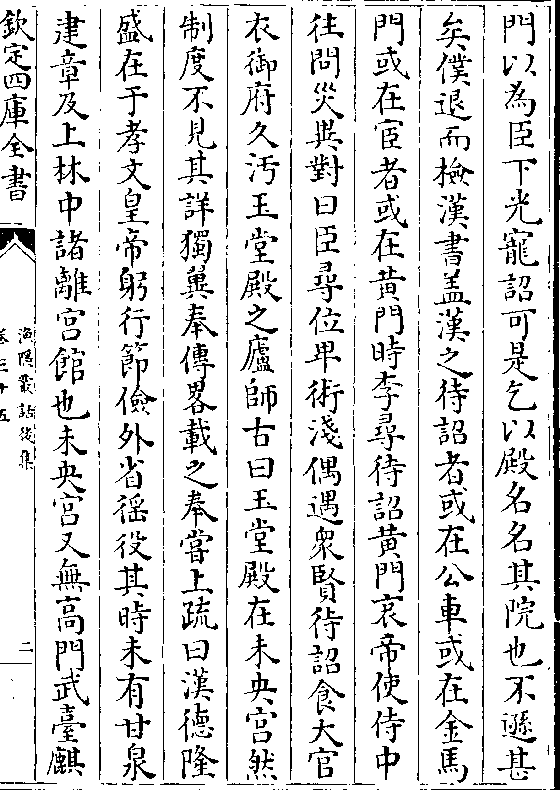 門以為臣下光寵詔可是乞以殿名名其院也不遜甚
矣僕退而檢漢書盖漢之待詔者或在公車或在金馬
門或在宦者或在黄門時李尋待詔黄門哀帝使侍中
往問災異對曰臣尋位卑術淺偶遇衆賢待詔食大官
衣御府久汚玉堂殿之廬師古曰玉堂殿在未央宮然
制度不見其詳獨翼奉傳畧載之奉嘗上疏曰漢德隆
盛在于孝文皇帝躬行節儉外省徭役其時未有甘泉
建章及上林中諸離宮館也未央宮又無高門武臺麒
欽定四庫全書
漁隠叢話後集
卷三十五
二